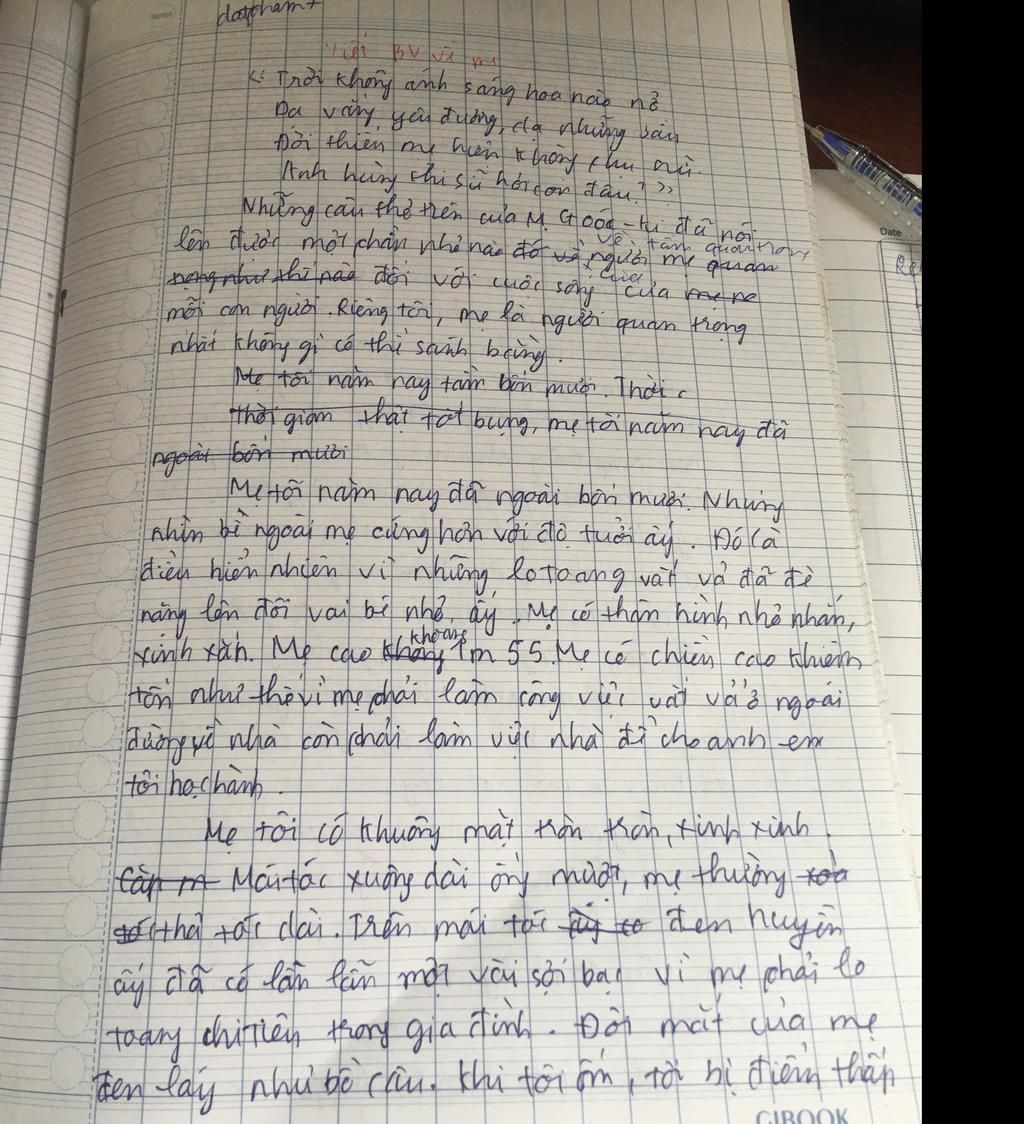 Notes
Viết BV về mẹ
<< Trời không anh sáng hoa nào nở
Đời thiếu mẹ hiền không
Anh hùng thi sĩ hỏi còn đâu? >>
Những câu thơ trên của M. Goog-ki đã nói
về tầm quan trọng
lên được một phần nhỏ nào đó về người mẹ quan
của
nọng như thế nào đối với cuộc sống của mẹ
mỗi con người. Riêng tôi, mẹ là người quan trọng
nhất không gì có thể sánh bằng.
Mẹ tôi năm nay tầm bốn mươi. Thời
thời gian thật tốt bụng, mẹ tôi năm nay đã
ngoài bốn mươi
Mẹ tôi năm nay đã ngoài bốn mươi. Nhưng
nhìn bề ngoài mẹ cứng hơn với độ tuổi ấy. Đó là
điều hiển nhiên vì những lo toang vất vả đã đè
nặng lên đôi vai bé nhỏ ấy. Mẹ có thân hình nhỏ nhắn,
khoảng
xinh xắn. Mẹ cao không 1m 55. Mẹ có chiều cao khiêm
tốn như thế vì mẹ phải làm công việc vất vả ở ngoài
đường về nhà còn phải làm việc nhà để cho anh em
tôi học hành.
Mẹ tôi có khuông mặt tròn tròn, xinh xinh.
Mái tóc xuông dài óng mượt, mẹ thường xoả
tóc thả tóc dài. Trên mái tóc ấy có đen huyền
ấy đã có lẫn lẫn một vài sợi bạc vì mẹ phải lo
toang chi tiêu trong gia đình. Đôi mắt của mẹ
đen láy như bồ câu. Khi tôi ốm, tôi bị điểm thấp
Date
GIBOOK